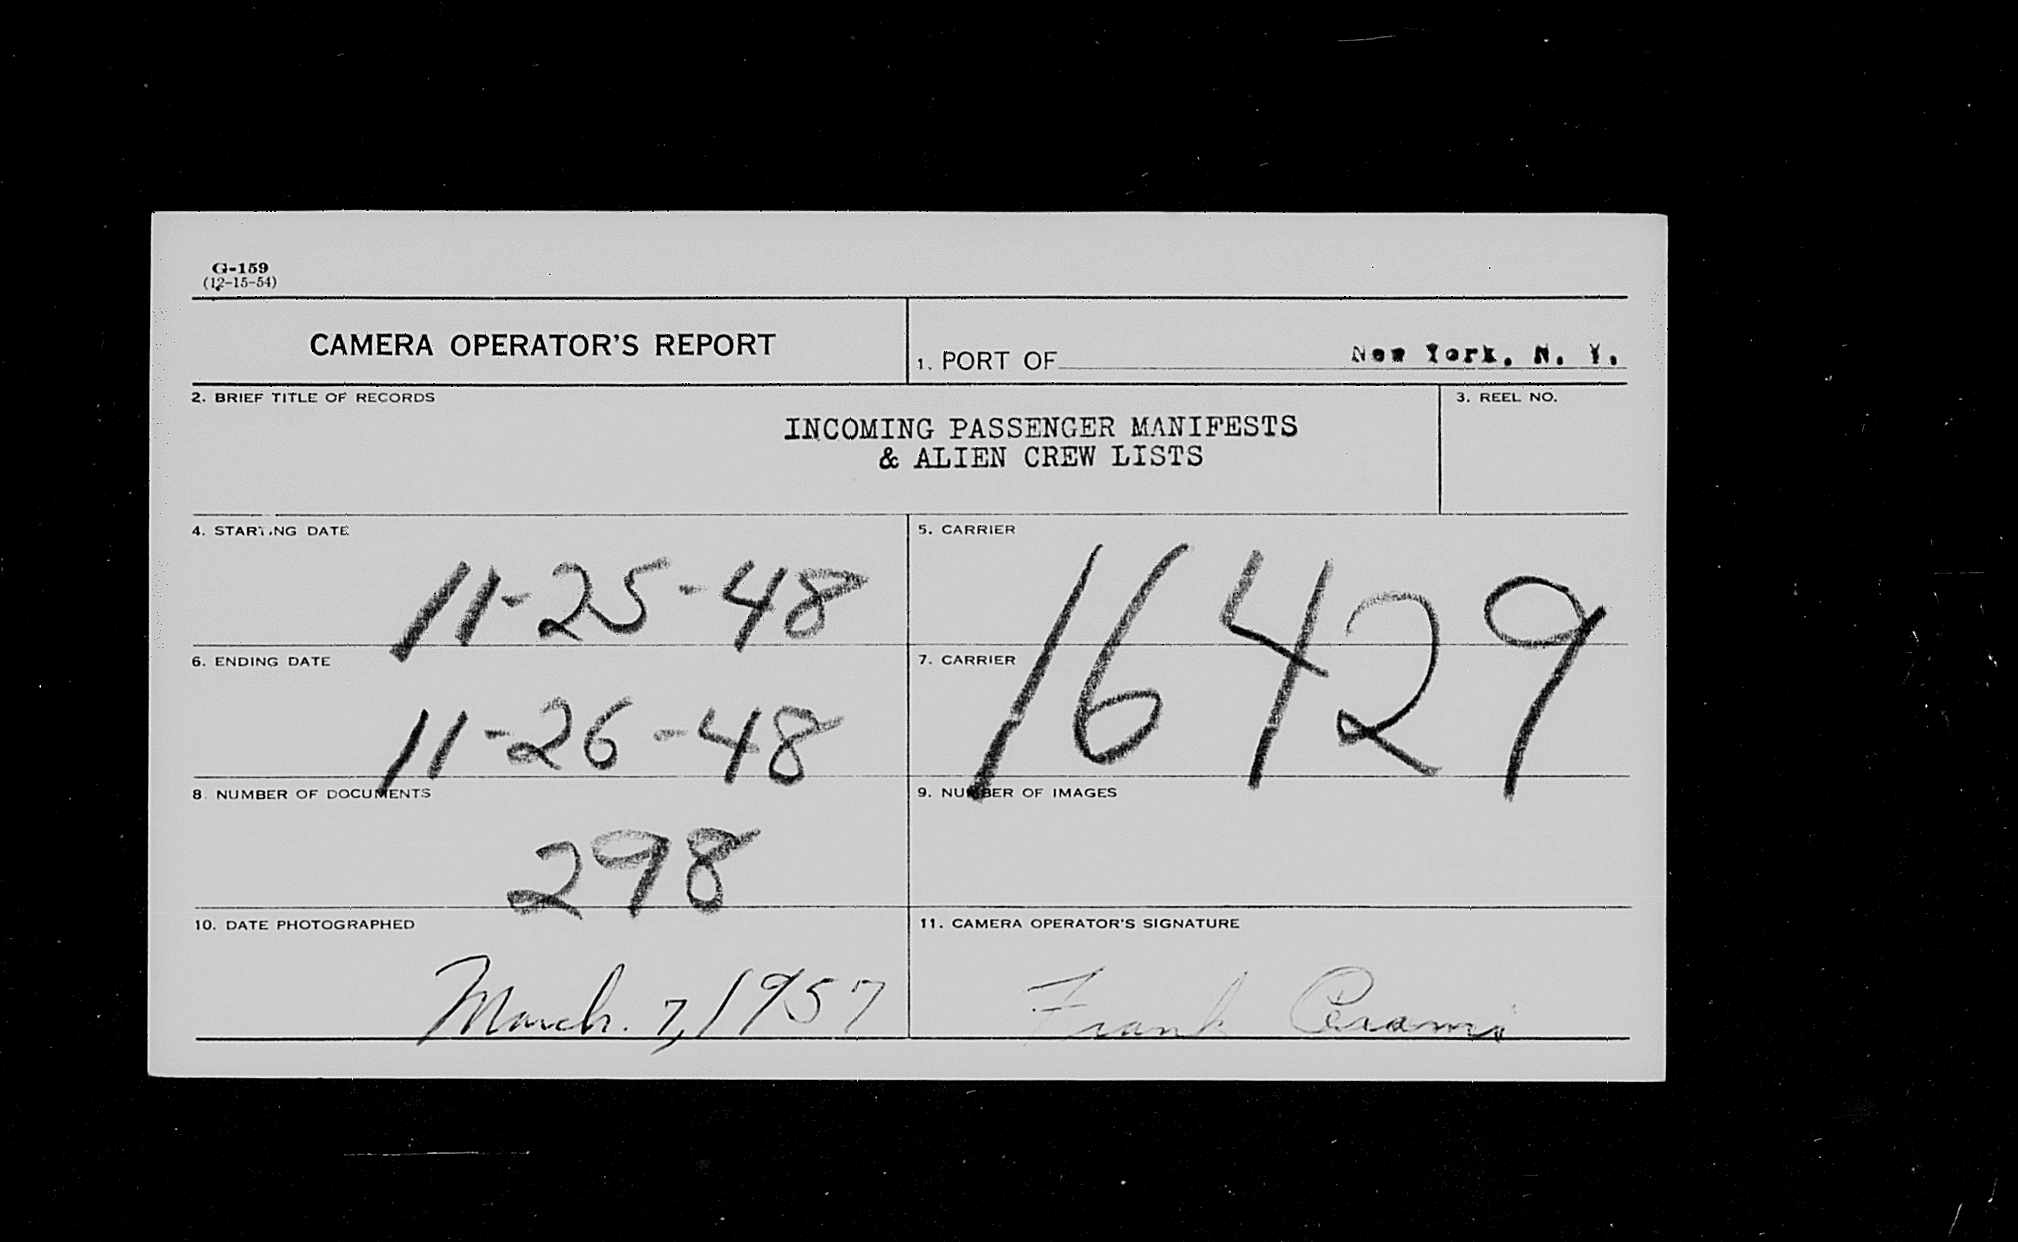 G-159
(12-15-54)
CAMERA OPERATOR'S REPORT
1. PORT OF New York, N. Y.
2. BRIEF TITLE OF RECORDS
INCOMING PASSENGER MANIFESTS
& ALIEN CREW LISTS
3. REEL NO.
4. STARTING DATE
11-25-48
5. CARRIER
16429
6. ENDING DATE
11-26-48
7. CARRIER
8. NUMBER OF DOCUMENTS
298
9. NUMBER OF IMAGES
10. DATE PHOTOGRAPHED
March. 7, 1957
11. CAMERA OPERATOR'S SIGNATURE
Frank